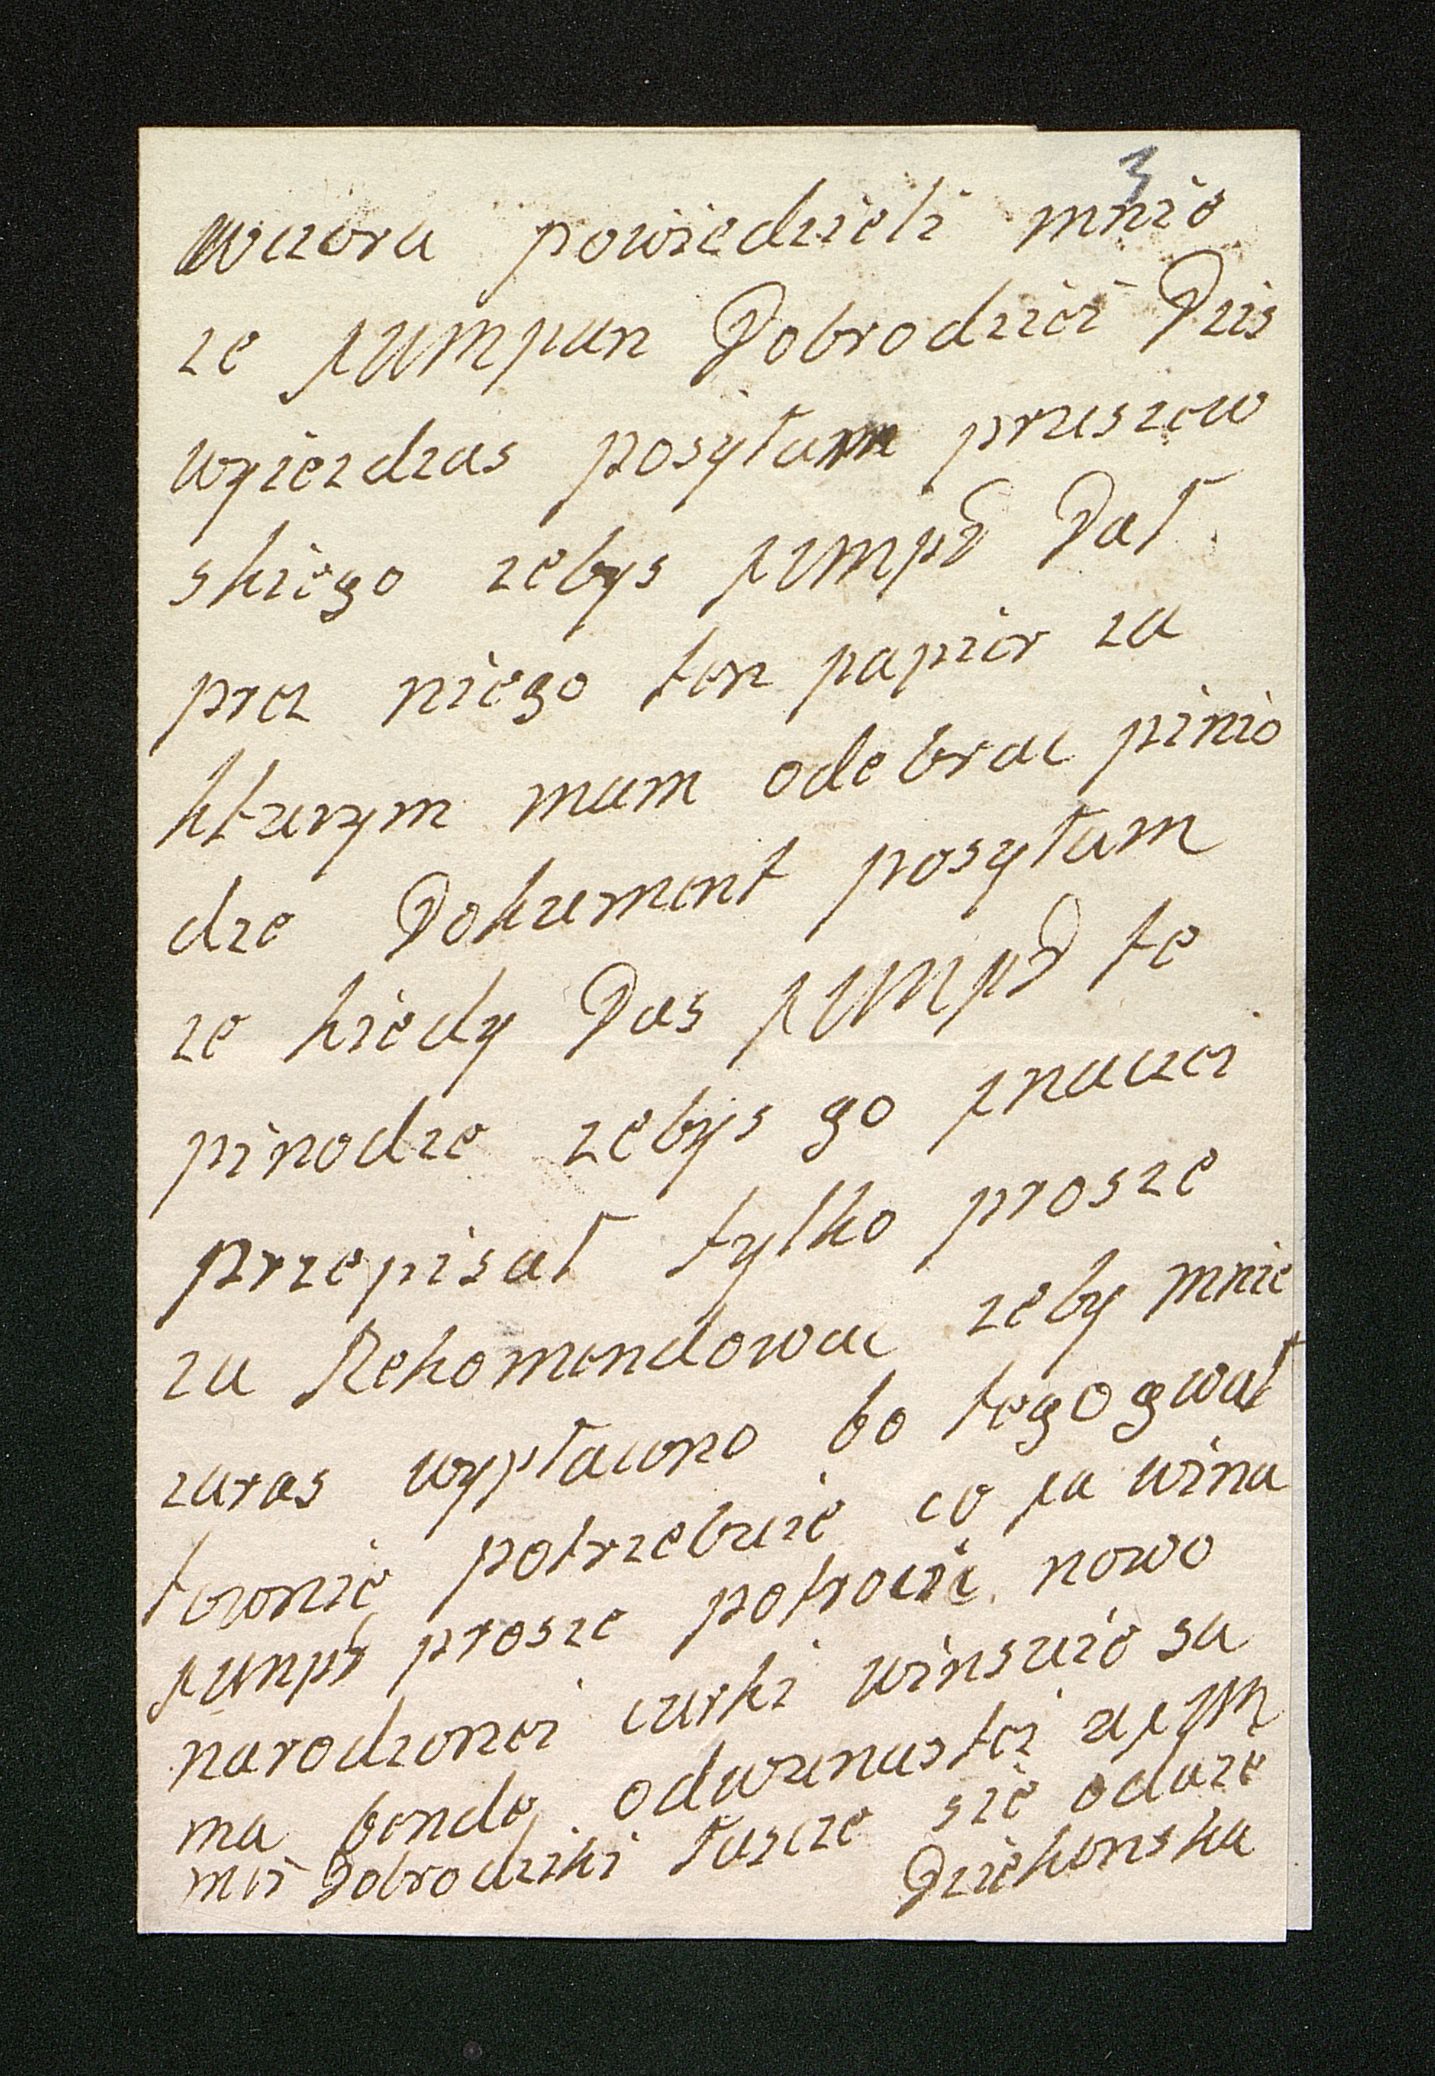 3
wczora powiedzieli mnie
ze jumpan Dobrodziei Dzis
wyiezdzas posyłam pruszew
skiego zebys jumpD Dał
prez niego ten papier za
kturym mam odebrac pinio
dze Dokument posyłam
ze kiedy Das jumpD te
pinodze zebys go inaczei
przepisał tylko prosze
za Rekomendowac zeby mnie
zaras wypłacono bo tego gwał
townie potrzebuie co ja wina
jumpD prosze potrocic nowo
narodzonei curki winszuie sa
ma bende
mei Dobrodziki łascze sie odaze
Dziekonska